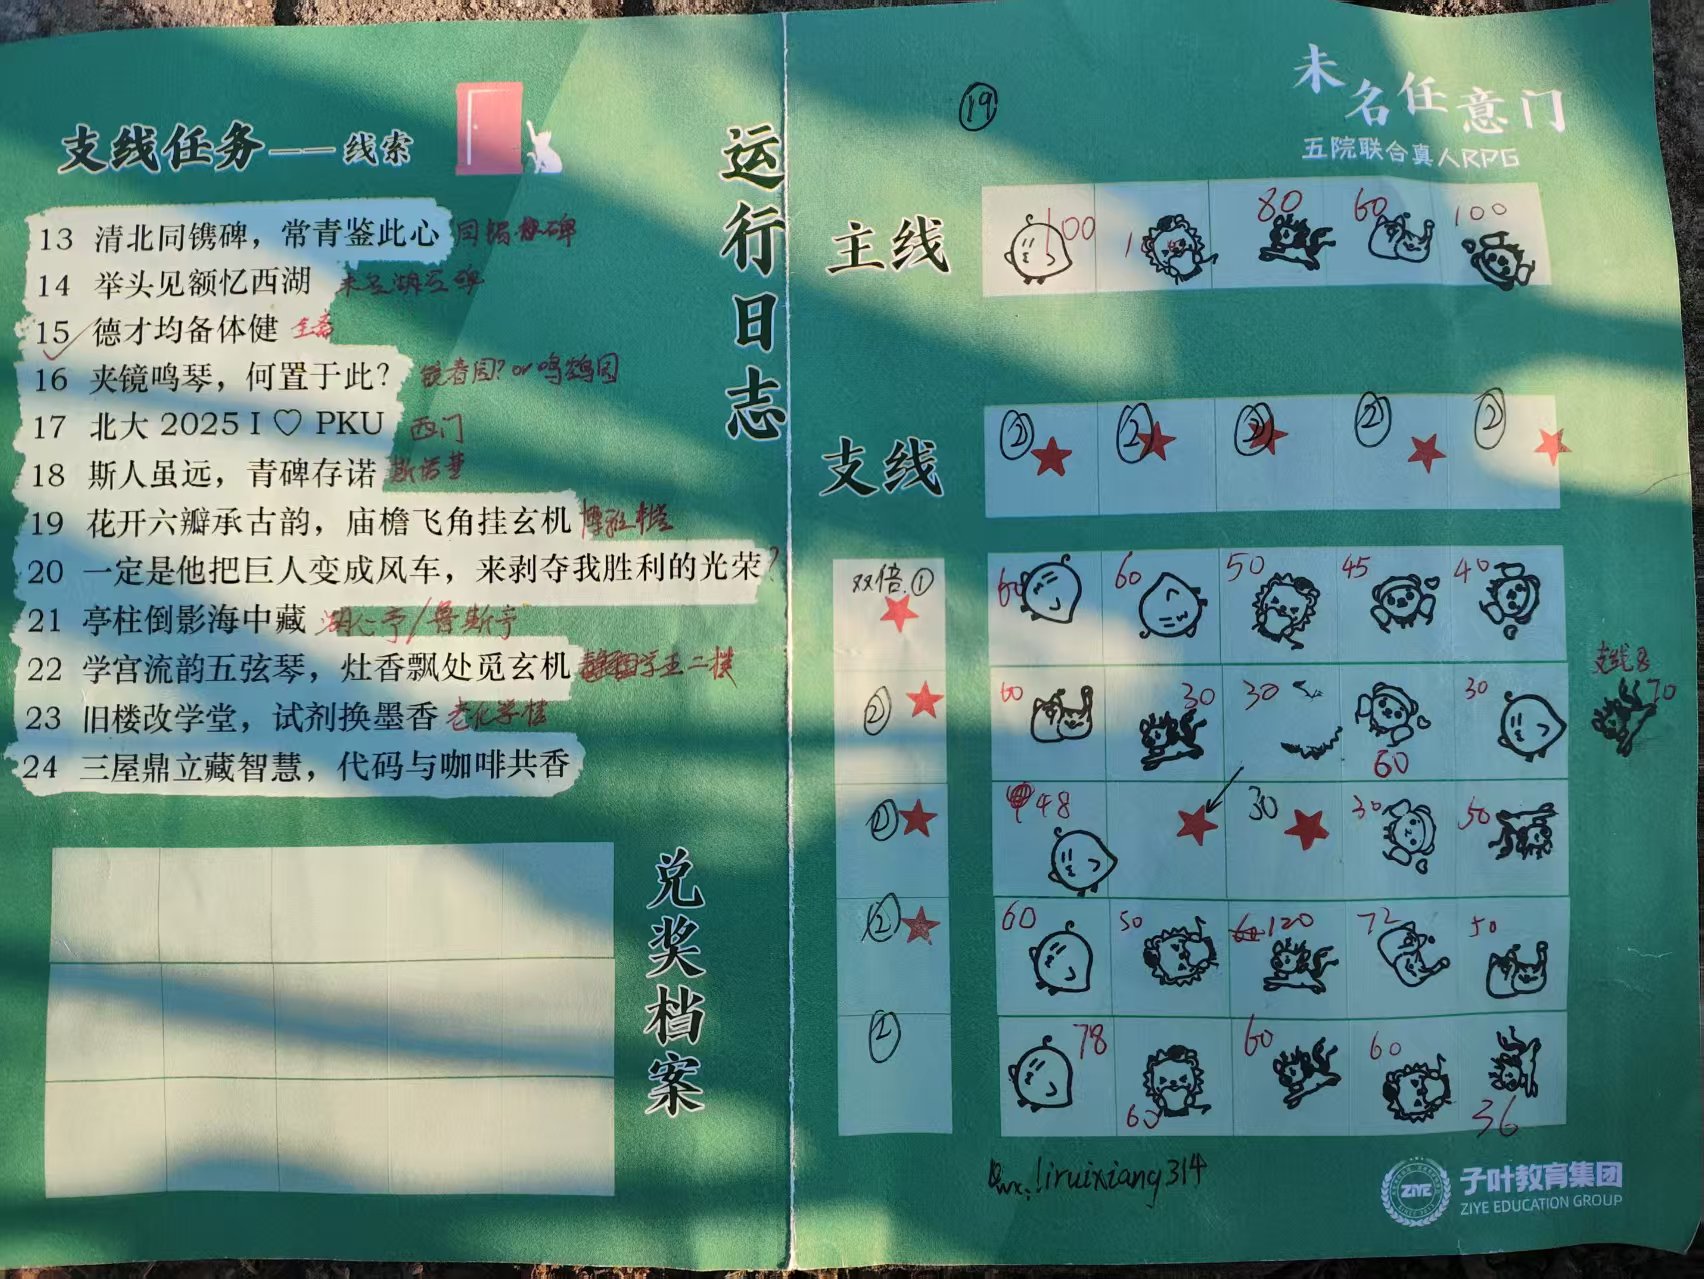 支线任务——线索
13 清北同镌碑，常青鉴此心
14 举头见额忆西湖 未名湖石碑
15 德才均备体健 全斋
16 夹镜鸣琴，何置于此？ 镜春园？or 鸣鹤园
17 北大 2025 I ♡ PKU 西门
18 斯人虽远，青碑存诺 斯诺墓
19 花开六瓣承古韵，庙檐飞角挂玄机 博雅
20 一定是他把巨人变成风车，来剥夺我胜利的光荣？
21 亭柱倒影海中藏 湖心亭/鲁斯亭
22 学宫流韵五弦琴，灶香飘处觅玄机 学五二楼
23 旧楼改学堂，试剂换墨香 老化学楼
24 三屋鼎立藏智慧，代码与咖啡共香
兑奖档案
运行日志
⑲
未名任意门
五院联合真人RPG
主线
100 80 60 100
支线
② ② ② ② ②
双倍.①
②
②
②
②
60 60 50 45 40
60 30 30 60 30
48 30 30 50
60 50 120 72 50
78 60 60 60 36
支线8
70
wx: liruixiang314
ZIYE
子叶教育集团
ZIYE EDUCATION GROUP